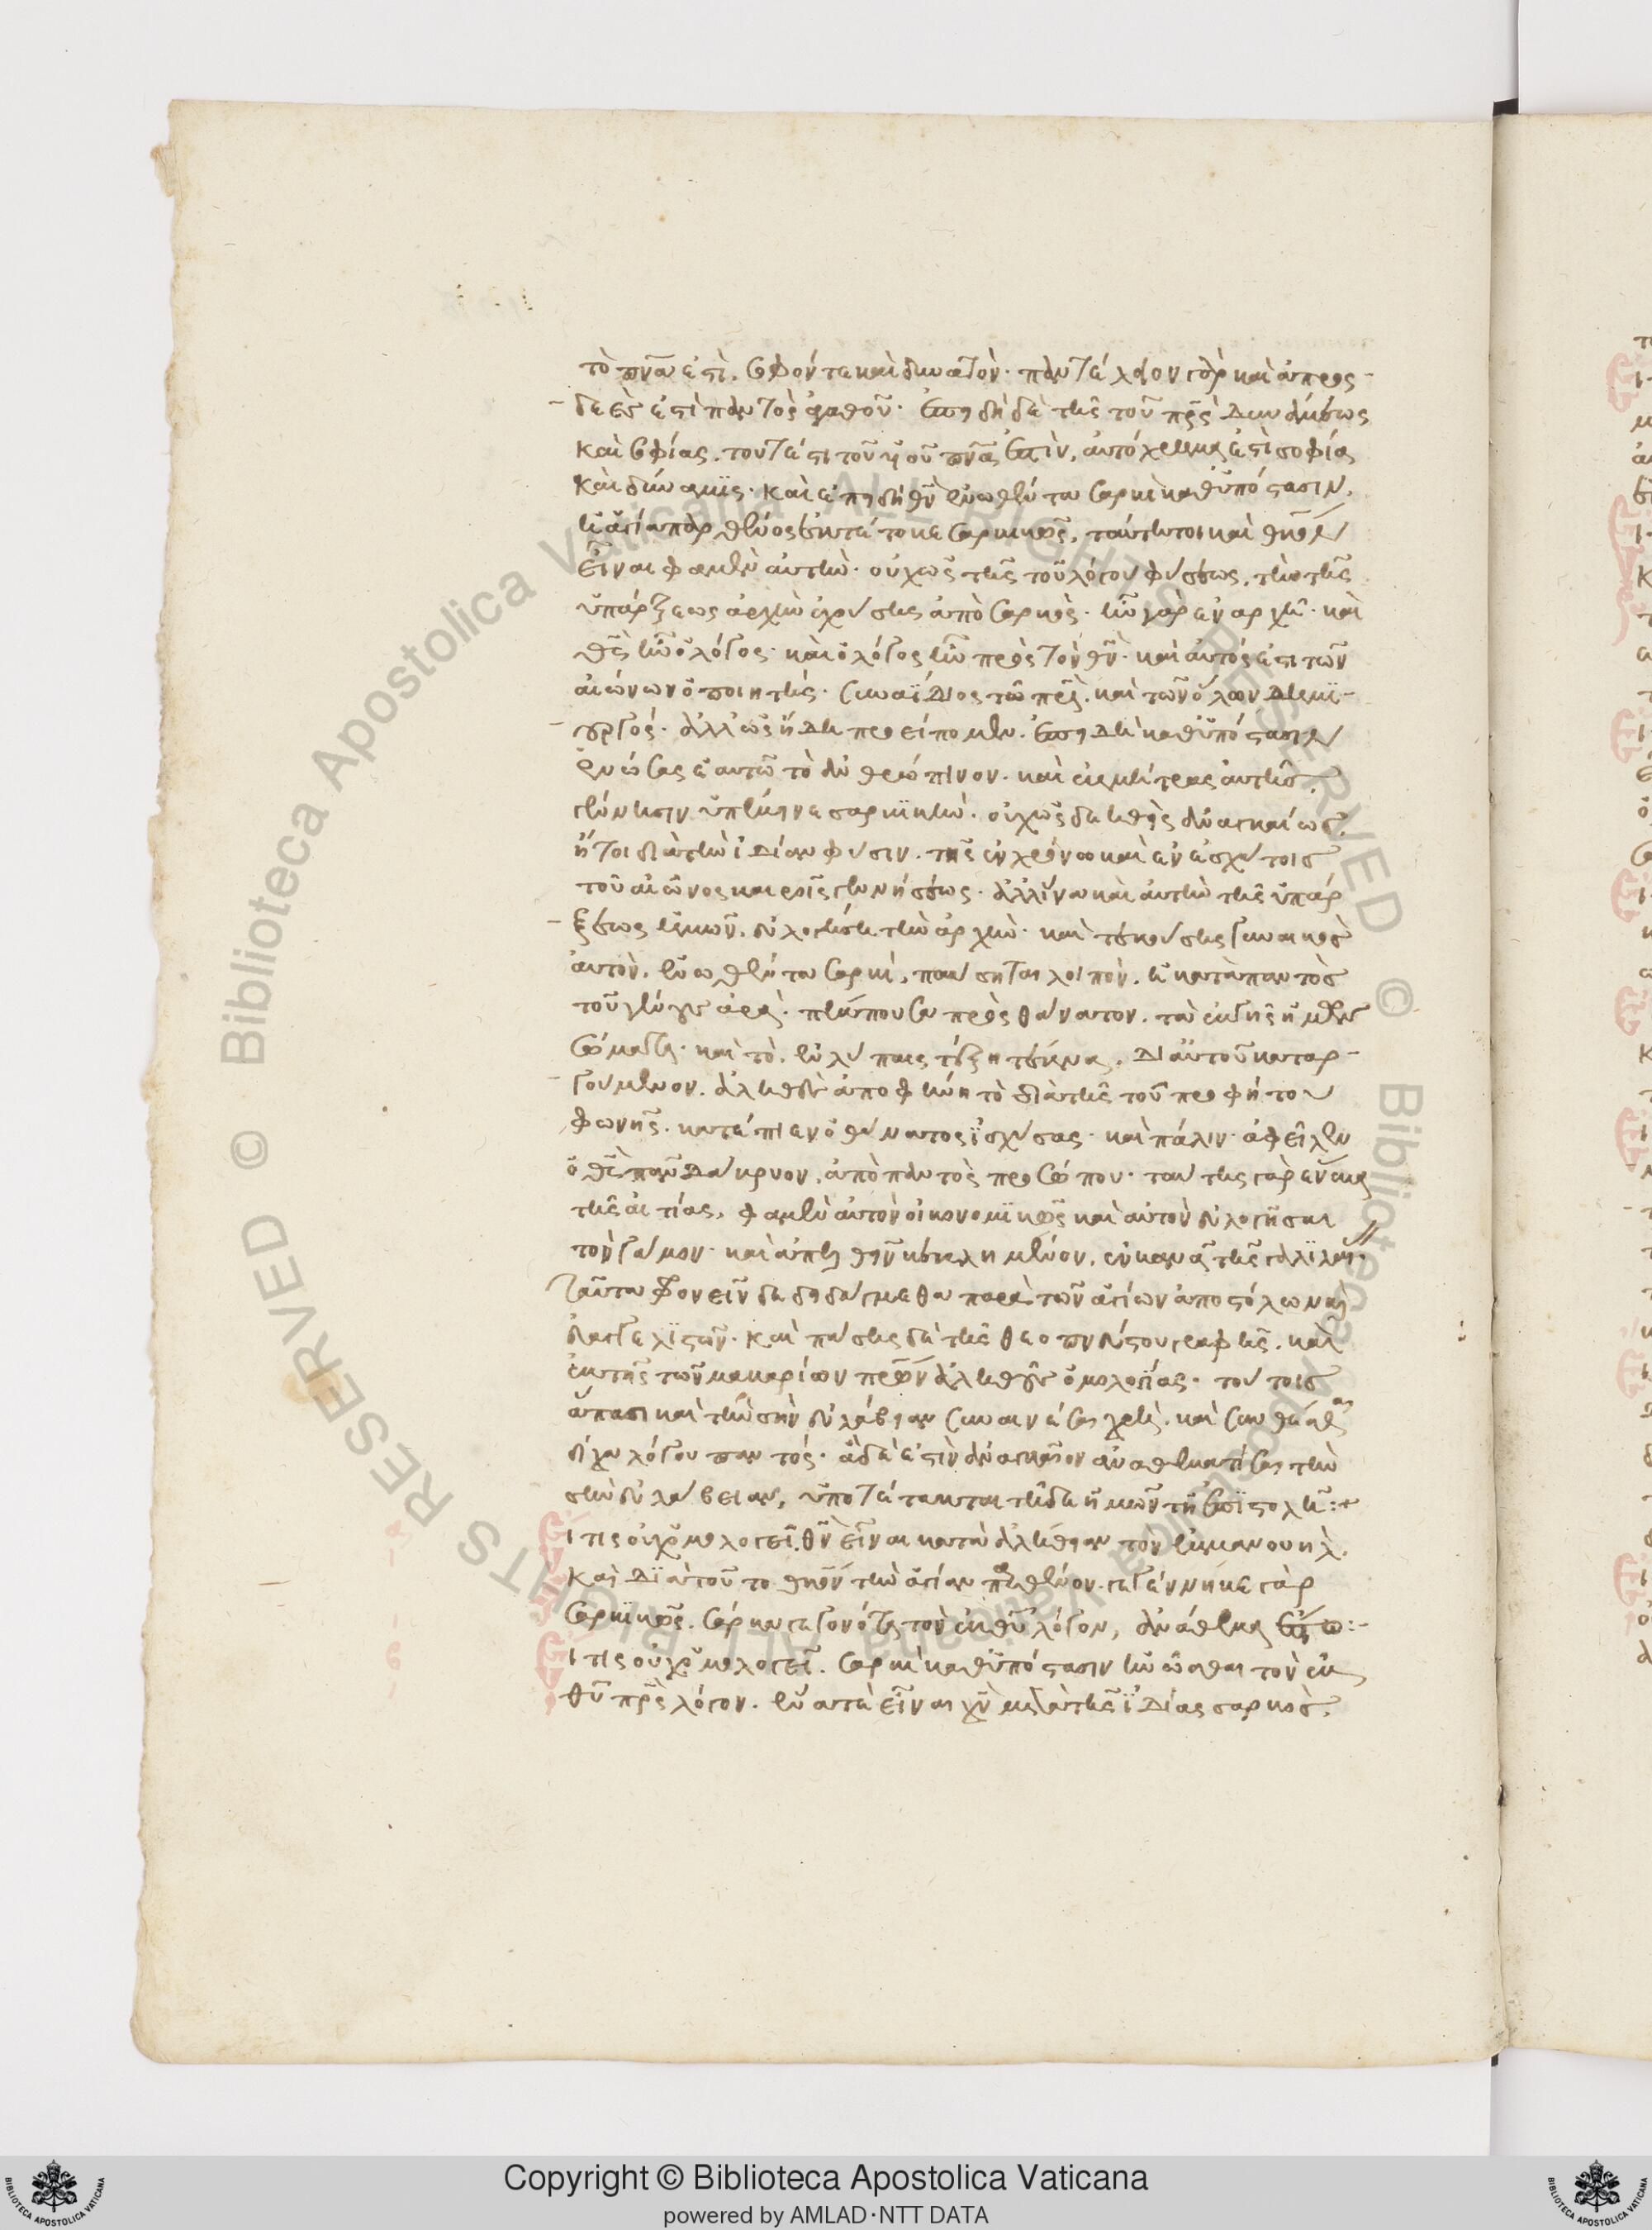 τὸ πνᾶ ἐστὶ. σοφόν τε καὶ δυνατόν· παντέλειον γὰρ καὶ ἀπροσ-
δεὲς ἐστὶ παντὸς ἀγαθοῦ· ἐπειδὴ δὲ τῆς τοῦ πρς δυνάμεως
καὶ σοφίας. τουτέστι τοῦ υἱοῦ πνᾶ ἐστὶν, αὐτόχρημα ἐστὶ σοφία
καὶ δύναμις· καὶ ἐπειδὴ θν ἑνωθέντα σαρκὶ καθ' ὑπόστασιν,
ἡ ἁγία παρθένος ἐκτέτοκε σαρκικῶς, ταύτη τοι καὶ θκον
εἶναι φαμὲν αὐτὴν· οὐχ ὡς τῆς τοῦ λόγου φύσεως, τὴν τῆς
ὑπάρξεως ἀρχὴν ἐχούσης ἀπὸ σαρκός· ἦν γὰρ ἐν αρχῆ· καὶ
θς ἦν ὁ λόγος· καὶ ὁ λόγος ἦν πρὸς τὸν θν· καὶ αὐτός ἐστι τῶν
αἰώνων ὁ ποιητής· συναΐδιος τῶ πρὶ. καὶ τῶν ὅλων δημι-
ουργός· ἀλλ' ὡς ἤδη προείπομεν. ἐπειδὴ καθ' ὑπόστασιν
ἑνώσας ἑαυτῶ τὸ ἀνθρώπινον. καὶ ἐκ μήτρας αὐτῆς,
γέννησιν ὑπέμεινε σαρκικὴν. οὐχ ὡς δεηθεὶς ἀναγκαίως,
ἤτοι διὰ τὴν ἰδίαν φύσιν. τῆς ἐν χρόνω καὶ ἐν ἐσχάτοις
τοῦ αἰῶνος καιροῖς γεννήσεως· ἀλλ' ἵνα καὶ αὐτὴν τῆς ὑπάρ-
ξεως ἡμῶν, εὐλογήση τὴν ἀρχὴν· καὶ τεκούσης γυναικὸς
αὐτὸν, ἑνωθέντα σαρκὶ, παύσηται λοιπὸν. ἡ κατὰ παντὸς
τοῦ γένους ἀρὰ· πέμπουσα πρὸς θάνατον. τὰ ἐκ γῆς ἡμῶν
σώματα· καὶ τὸ, ἐν λύπαις τέξη τέκνα. δι' αὐτοῦ καταρ-
γούμενον. ἀληθὲς ἀποφήνη τὸ διὰ τῆς τοῦ προφήτου
φωνῆς. κατέπιεν ὁ θάνατος ἰσχύσας· καὶ πάλιν· ἀφεῖλεν
ὁ θς πᾶν δάκρυον, ἀπὸ παντὸς προσώπου· ταύτης γὰρ ἕνεκα
τῆς αἰτίας, φαμὲν αὐτὸν οἰκονομικῶς καὶ αὐτὸν εὐλογῆσαι
τὸν γάμον· καὶ ἀπελθεῖν κεκλημένον, ἐν κανᾶ τῆς γαλιλαί
ταῦτα φρονεῖν δεδιδάγμεθα παρὰ τῶν ἁγίων ἀποστόλων καὶ
εὐαγγελιστῶν· καὶ πάσης δὲ τῆς θεοπνεύστου γραφῆς. καὶ
ἐκ τῆς τῶν μακαρίων πρων ἀληθοῦς ὁμολογίας· τούτοις
ἅπασι καὶ τὴν σὴν εὐλάβειαν συναινέσαι χρὴ. καὶ συνθέσθαι
δίχα λόγου παντός· ἃ δὲ ἐστὶν ἀναγκαῖον ἀναθεματίσαι τὴν
σὴν εὐλάβειαν, ὑποτέτακται τῆδε ἡμῶν τῆ ἐπιστολῆ:+
Εἴ τις οὐχ ὁμολογεῖ. θν εἶναι κατὰ ἀλήθειαν τὸν ἐμμανουὴλ.
καὶ διὰ τοῦτο θκον τὴν ἁγίαν παρθένον. γεγέννηκε γὰρ
σαρκικῶς. σάρκα γεγονότα τὸν ἐκ θυ λόγον, ἀνάθεμα ἔστω:-
Εἴ τις οὐχ ὁμολογεῖ. σαρκὶ καθ' ὑπόστασιν ἡνῶσθαι τὸν ἐκ
θυ πρς λόγον. ἕνα τὲ εἶναι χν μετὰ τῆς ἰδίας σαρκὸς,
Copyright © Biblioteca Apostolica Vaticana
powered by AMLAD·NTT DATA